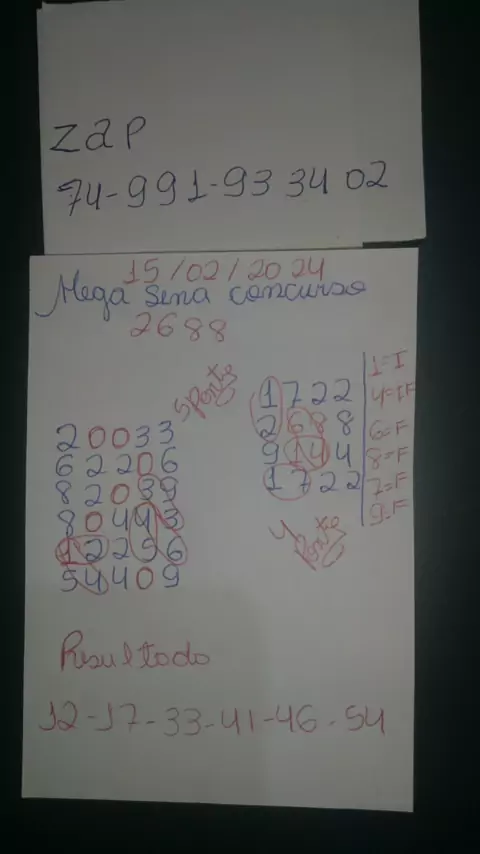 zap
74-991-93 34 02
15/02/2024
Mega Sena concurso
2688
5 Ponto
20033
62206
82039
80443
12296
54409
1722
2688
9144
1722
4 Ponto
1=I
4=IF
6=F
8=F
7=F
9=F
Resultado
12-17-33-41-46-54